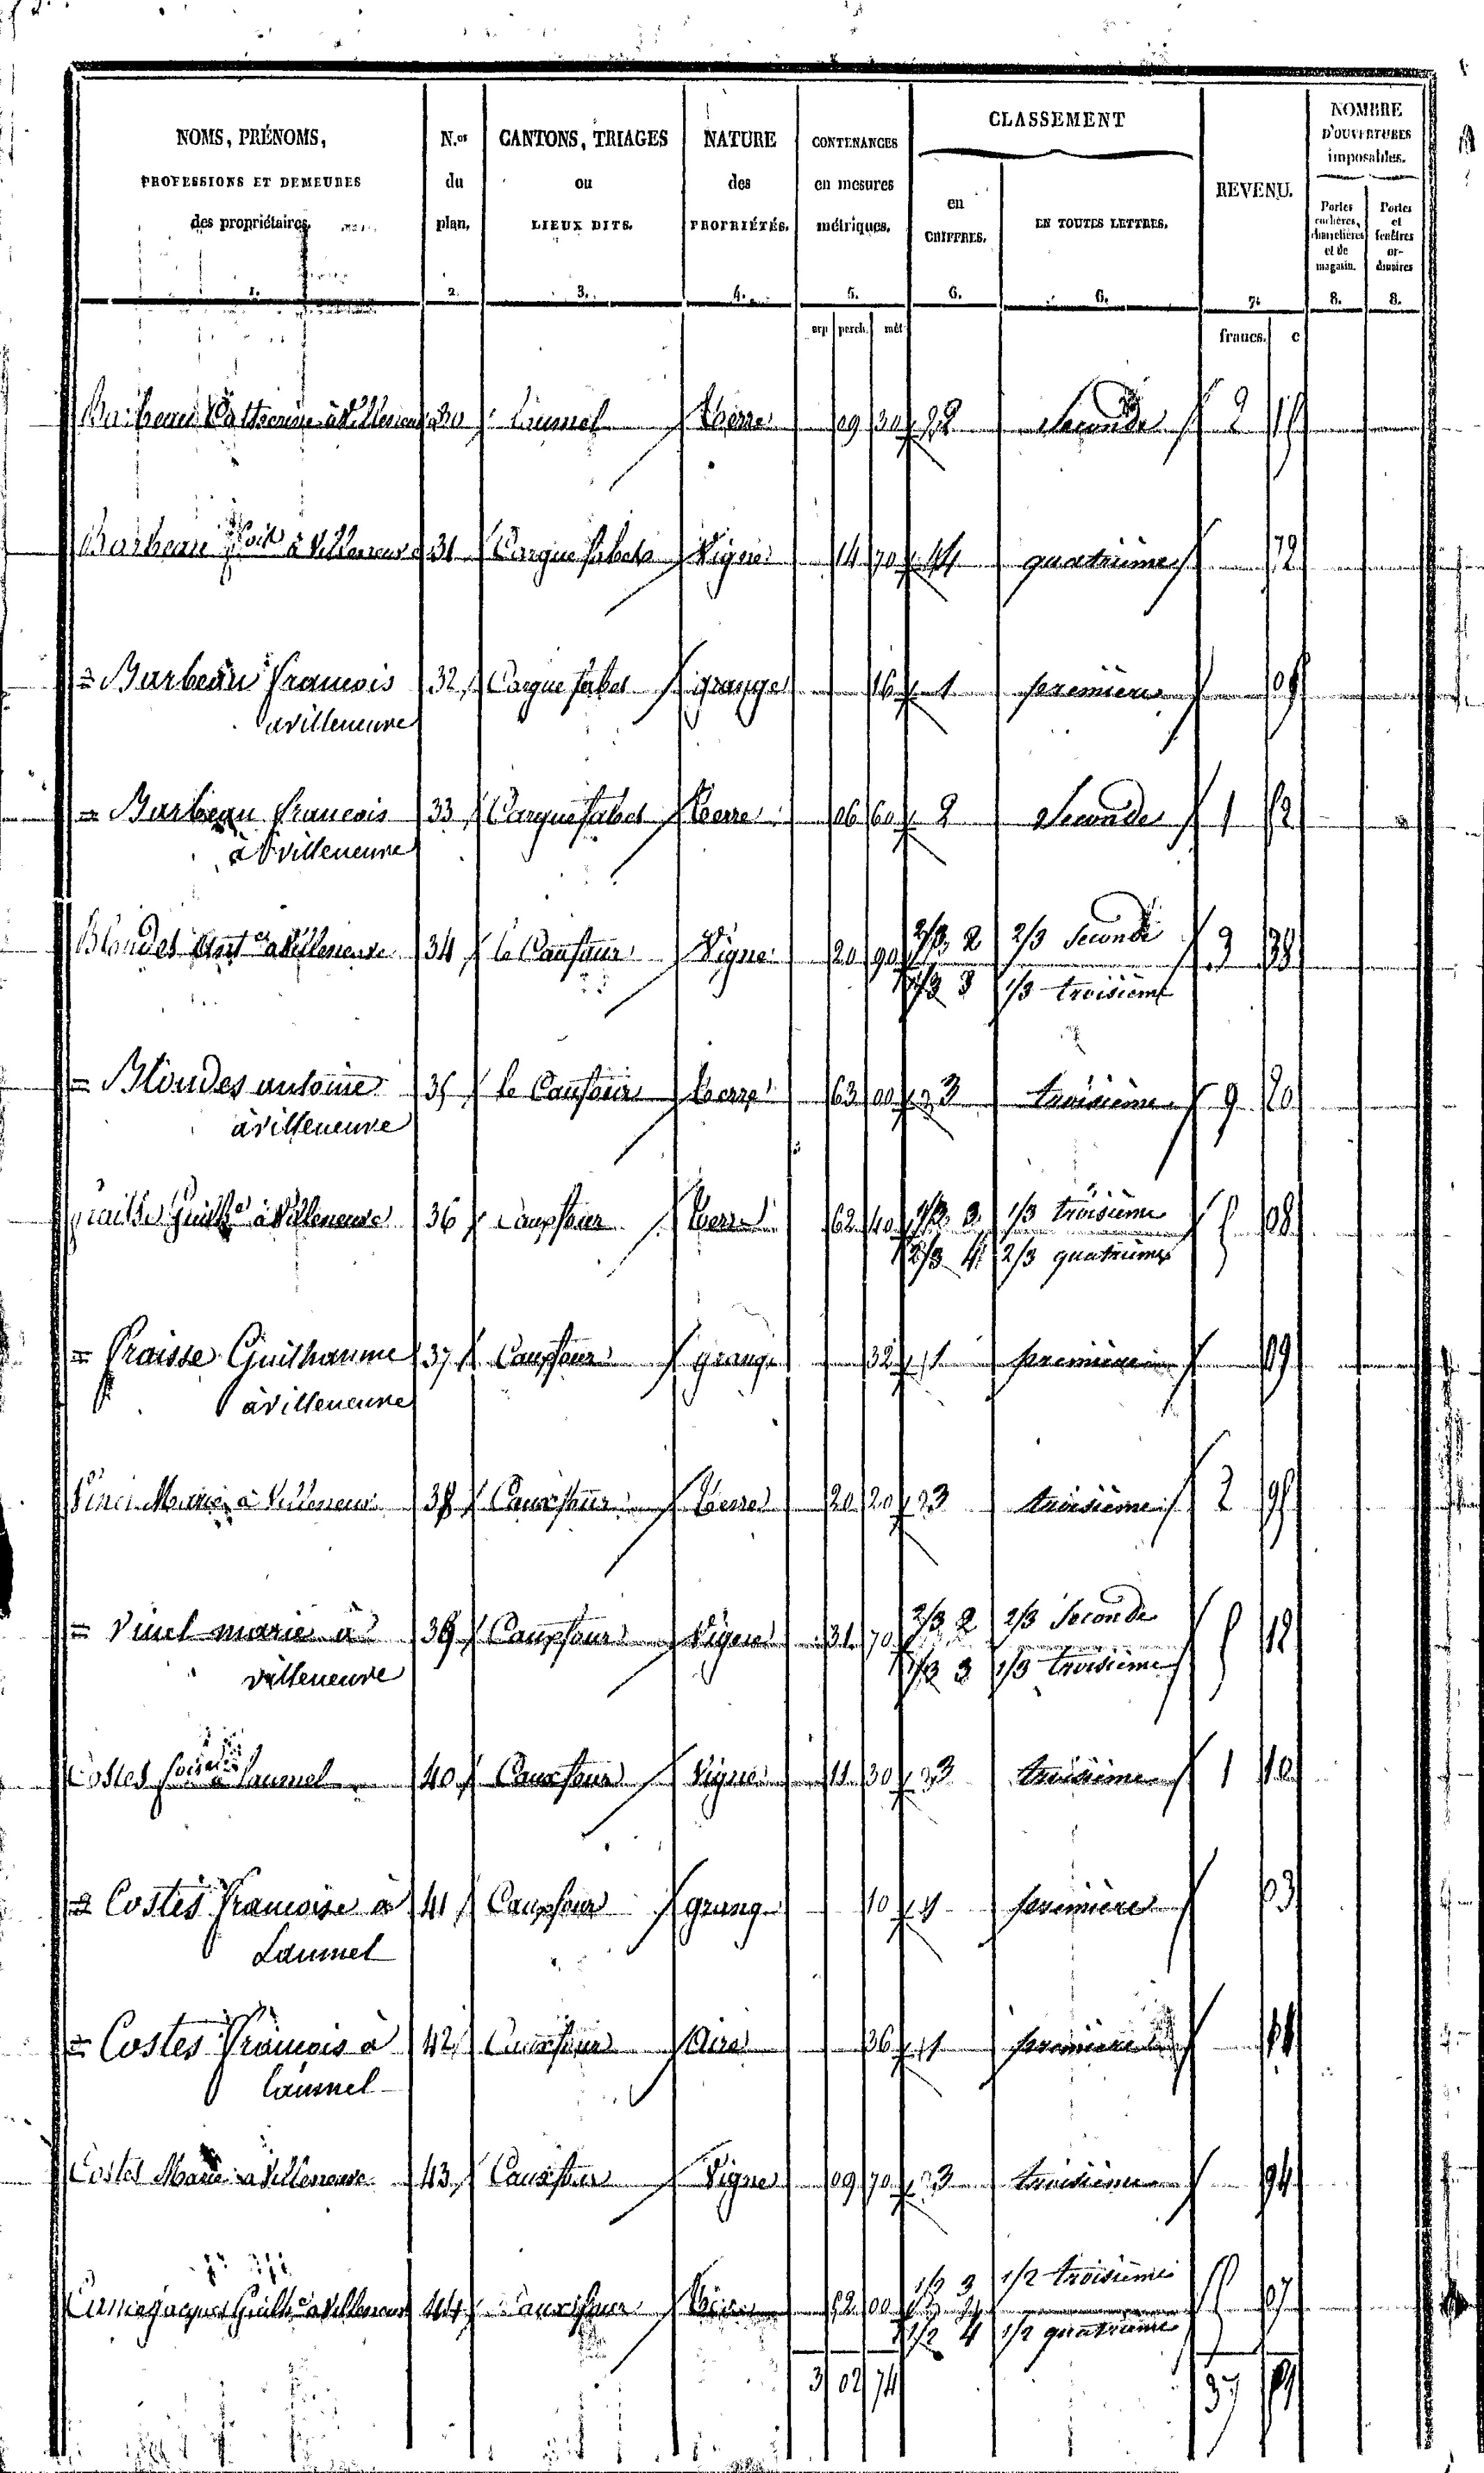 NOMS, PRÉNOMS, PROFESSIONS ET DEMEURES des propriétaires. 1.
N.os du plan. 2.
CANTONS, TRIAGES ou LIEUX DITS. 3.
NATURE des PROPRIÉTÉS. 4.
CONTENANCES en mesures métriques. 5.
CLASSEMENT
en CHIFFRES. 6.
EN TOUTES LETTRES. 6.
REVENU. 7.
NOMBRE D'OUVERTURES imposables.
Portes cochères, charretières et de magasin. 8.
Portes et fenêtres ordinaires 8.
arp. perch. mèt. francs. c
Barbeau Catherine à Villeneuve 30 Laumel Terre 09 30 2 Seconde 2 15
Barbeau à Villeneuve 31 Cargue sabets Vigne 14 70 4 quatrième 72
= Barbeau Francois 32 Cargue sabet grange 16 1 première 05
à villeneuve
= Barbeau francois 33 Cargue sabet terre 06 60 2 Seconde 1 52
à villeneuve
Blondes à Villeneuve 34 le Vigne 20 90 2/3 2 2/3 Seconde 3 38
1/3 3 1/3 troisième
= Blondes antoine 35 le terre 63 00 3 troisième 9 20
à villeneuve
à Villeneuve 36 Caupfour terre 62 40 1/3 3 1/3 troisième 5 08
2/3 4 2/3 quatrième
= Fraisse Guilhaume 37 Caupfour grange 32 1 première 09
à villeneuve
Vinel Marie à Villeneuve 38 Caupfour Terre 20 20 3 troisième 2 95
= Vinel marie à 39 Caupfour Vigne 31 70 2/3 2 2/3 Seconde 5 12
villeneuve 1/3 3 1/3 troisième
Costes à Laumel 40 Caupfour Vigne 11 30 3 troisième 1 10
= Costes Francoise à 41 Caupfour grange 10 1 première 03
Laumel
= Costes Francois à 42 Caupfour Aire 36 1 première
laumel
Costes Marie à Villeneuve 43 Caupfour Vigne 09 70 3 troisième 94
à Villeneuve 44 Caupfour 52 00 1/2 3 1/2 troisième 5 67
1/2 4 1/2 quatrième
3 02 74 37